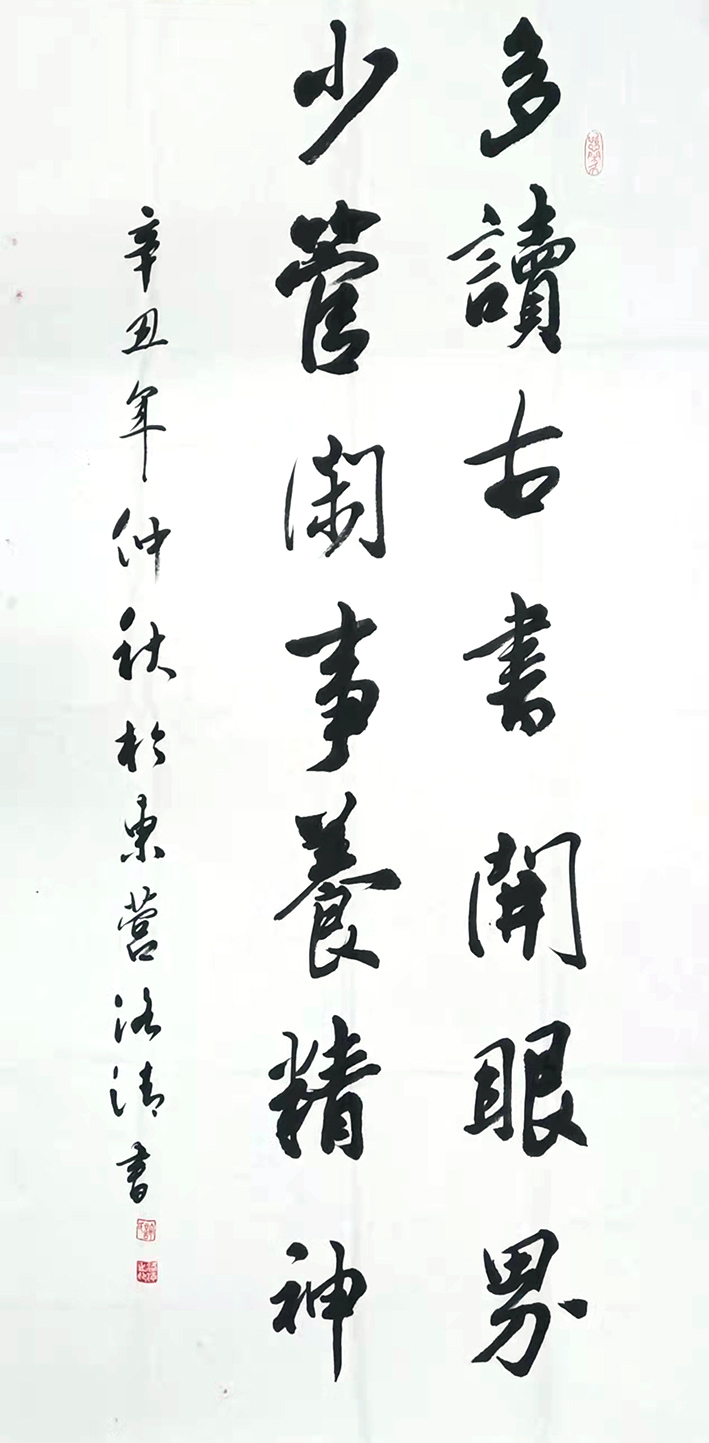 多讀古書開眼界
少管閑事養精神
辛丑年仲秋於東營洛清書